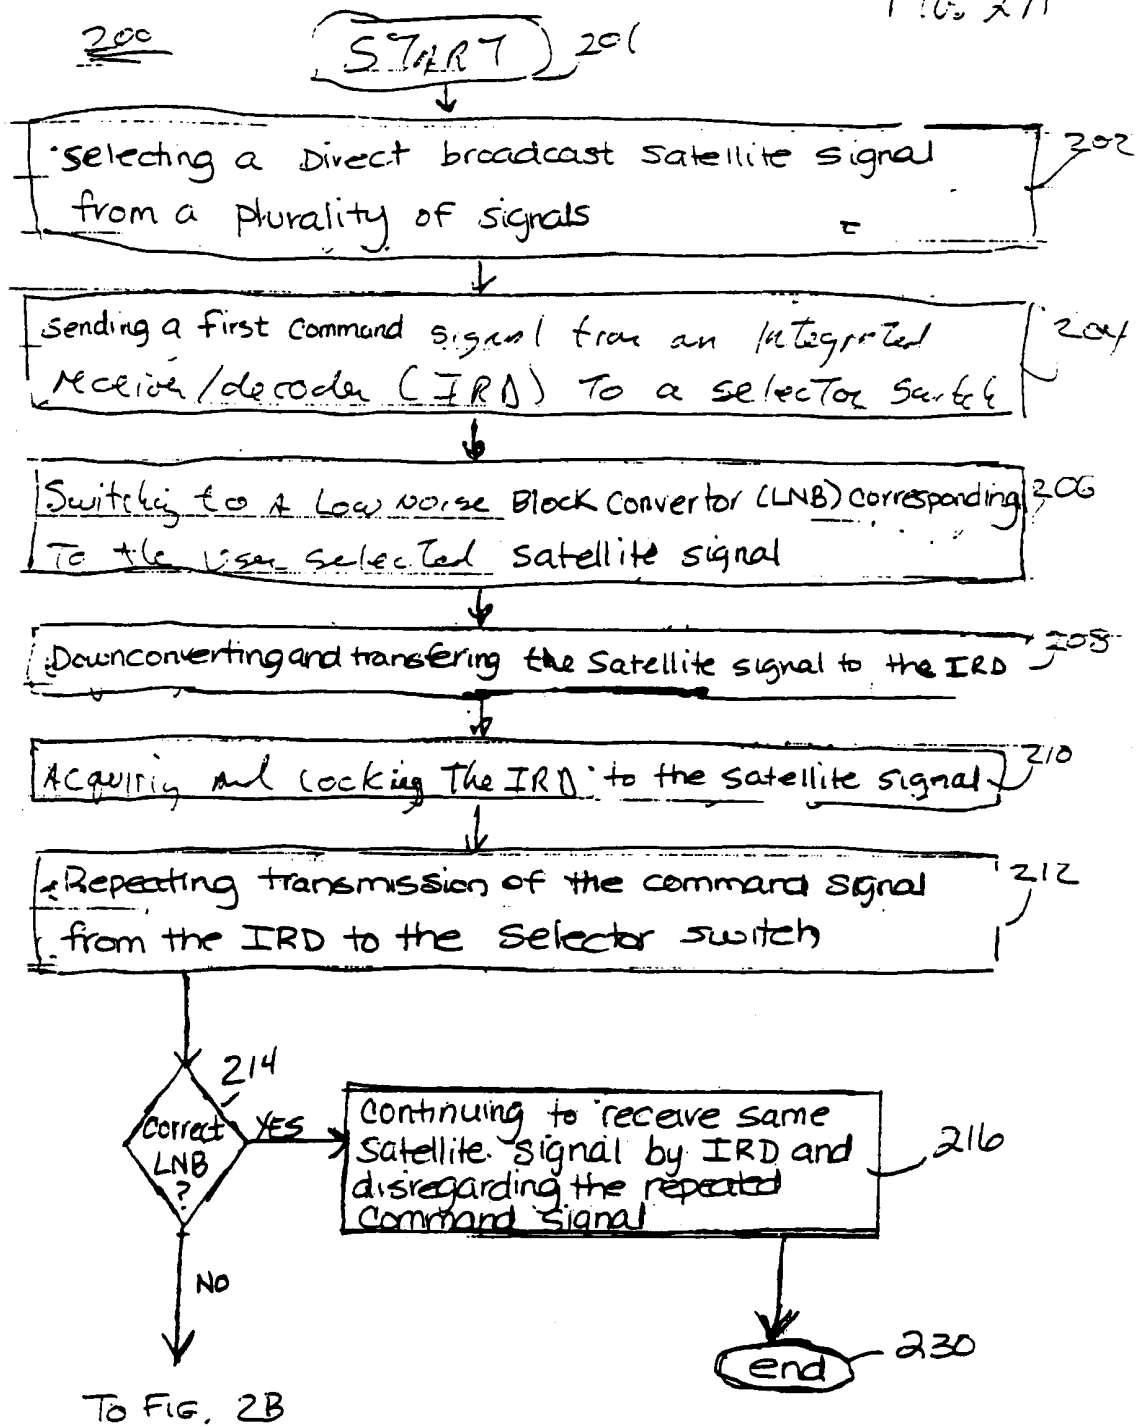 FIG. 2A
200
START 201
selecting a Direct broadcast satellite signal 202
from a plurality of signals
sending a first command signal from an Integrated 204
receiver/decoder (IRD) To a selector Switch
Switching to A Low Noise Block Convertor (LNB) corresponding 206
To the user selected satellite signal
Downconverting and transfering the satellite signal to the IRD 208
Acquiring and locking The IRD to the satellite signal 210
Repeating transmission of the command signal 212
from the IRD to the selector switch
214
Correct
LNB
?
YES
continuing to receive same
satellite signal by IRD and 216
disregarding the repeated
command signal
NO
end 230
To FIG. 2B